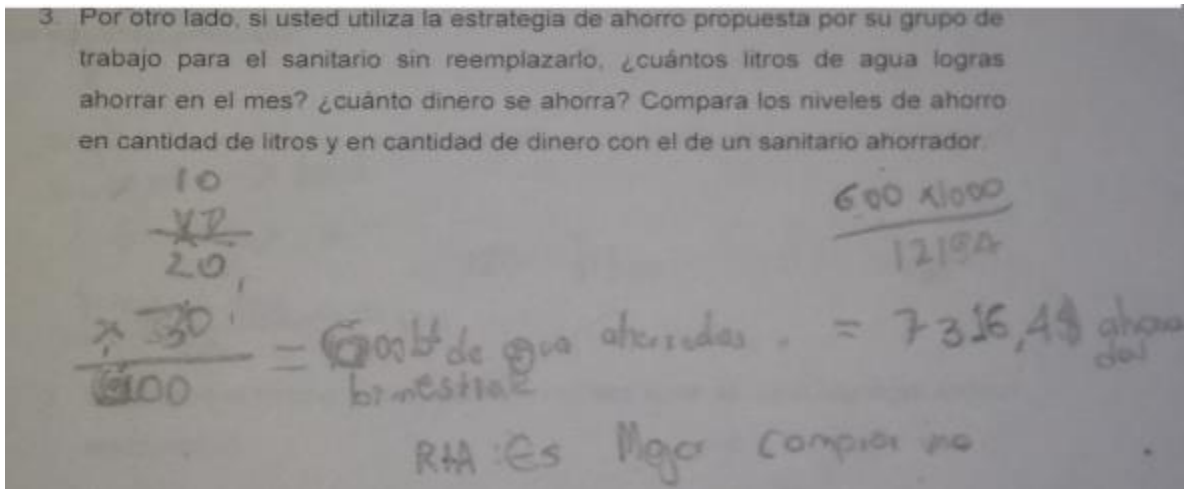 3. Por otro lado, si usted utiliza la estrategia de ahorro propuesta por su grupo de
trabajo para el sanitario sin reemplazarlo, ¿cuántos litros de agua logras
ahorrar en el mes? ¿cuánto dinero se ahorra? Compara los niveles de ahorro
en cantidad de litros y en cantidad de dinero con el de un sanitario ahorrador.
10
20
600 x1000
12194
x 30
600
= 600 de agua ahorradas.
bimestral
= 7316,4$
RTA: Es Mejor comprar